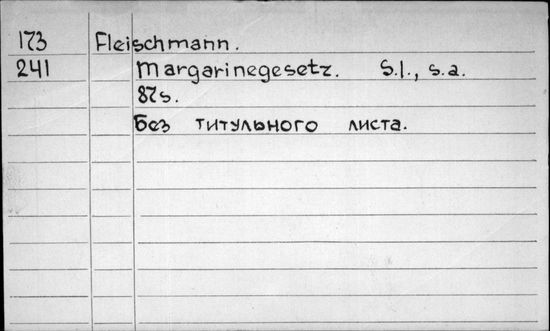 173 Fleischmann.
241 Margarinegesetz. S.l., s.a.
87s.
Без титульного листа.